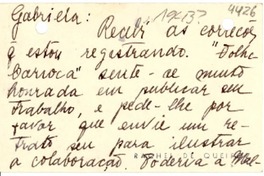 4426
1943?
Gabriela: Recebi as correcções
e estou registrando. "Folha
Carioca" sente-se muito
honrada em publicar seu
trabalho, e pede-lhe por
favor que envie um re-
trato seu para ilustrar
RACHEL DE QUEI
a colaboração. Poderia a